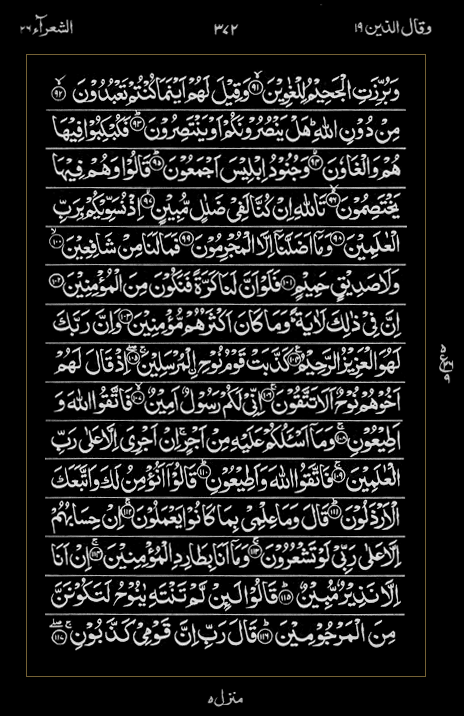 وقال الذين ١٩ ٣٧٢ الشعرآء ٢٦
وَبُرِّزَتِ الْجَحِيْمُ لِلْغٰوِيْنَ ۙ﴿۹۱﴾ وَقِيْلَ لَهُمْ اَيْنَمَا كُنْتُمْ تَعْبُدُوْنَ ۙ﴿۹۲﴾
مِنْ دُوْنِ اللّٰهِ ؕ هَلْ يَنْصُرُوْنَكُمْ اَوْ يَنْتَصِرُوْنَ ؕ﴿۹۳﴾ فَكُبْكِبُوْا فِيْهَا
هُمْ وَالْغَاوٗنَ ۙ﴿۹۴﴾ وَجُنُوْدُ اِبْلِيْسَ اَجْمَعُوْنَ ؕ﴿۹۵﴾ قَالُوْا وَهُمْ فِيْهَا
يَخْتَصِمُوْنَ ۙ﴿۹۶﴾ تَاللّٰهِ اِنْ كُنَّا لَفِيْ ضَلٰلٍ مُّبِيْنٍ ۙ﴿۹۷﴾ اِذْ نُسَوِّيْكُمْ بِرَبِّ
الْعٰلَمِيْنَ ﴿۹۸﴾ وَمَاۤ اَضَلَّنَاۤ اِلَّا الْمُجْرِمُوْنَ ﴿۹۹﴾ فَمَا لَنَا مِنْ شَافِعِيْنَ ۙ﴿۱۰۰﴾
وَلَا صَدِيْقٍ حَمِيْمٍ ﴿۱۰۱﴾ فَلَوْ اَنَّ لَنَا كَرَّةً فَنَكُوْنَ مِنَ الْمُؤْمِنِيْنَ ﴿۱۰۲﴾
اِنَّ فِيْ ذٰلِكَ لَاٰيَةً ؕ وَمَا كَانَ اَكْثَرُهُمْ مُّؤْمِنِيْنَ ﴿۱۰۳﴾ وَاِنَّ رَبَّكَ
لَهُوَ الْعَزِيْزُ الرَّحِيْمُ ﴿۱۰۴﴾ كَذَّبَتْ قَوْمُ نُوْحِ ِۨالْمُرْسَلِيْنَ ۚۖ﴿۱۰۵﴾ اِذْ قَالَ لَهُمْ
اَخُوْهُمْ نُوْحٌ اَلَا تَتَّقُوْنَ ۚ﴿۱۰۶﴾ اِنِّيْ لَكُمْ رَسُوْلٌ اَمِيْنٌ ۙ﴿۱۰۷﴾ فَاتَّقُوا اللّٰهَ وَ
اَطِيْعُوْنِ ۚ﴿۱۰۸﴾ وَمَاۤ اَسْـَٔلُكُمْ عَلَيْهِ مِنْ اَجْرٍ ۚ اِنْ اَجْرِيَ اِلَّا عَلٰى رَبِّ
الْعٰلَمِيْنَ ۚ﴿۱۰۹﴾ فَاتَّقُوا اللّٰهَ وَاَطِيْعُوْنِ ؕ﴿۱۱۰﴾ قَالُوْۤا اَنُؤْمِنُ لَكَ وَاتَّبَعَكَ
الْاَرْذَلُوْنَ ؕ﴿۱۱۱﴾ قَالَ وَمَا عِلْمِيْ بِمَا كَانُوْا يَعْمَلُوْنَ ۚ﴿۱۱۲﴾ اِنْ حِسَابُهُمْ
اِلَّا عَلٰى رَبِّيْ لَوْ تَشْعُرُوْنَ ۚ﴿۱۱۳﴾ وَمَاۤ اَنَا بِطَارِدِ الْمُؤْمِنِيْنَ ۚ﴿۱۱۴﴾ اِنْ اَنَا
اِلَّا نَذِيْرٌ مُّبِيْنٌ ؕ﴿۱۱۵﴾ قَالُوْا لَئِنْ لَّمْ تَنْتَهِ يٰنُوْحُ لَتَكُوْنَنَّ
مِنَ الْمَرْجُوْمِيْنَ ؕ﴿۱۱۶﴾ قَالَ رَبِّ اِنَّ قَوْمِيْ كَذَّبُوْنِ ۚۖ﴿۱۱۷﴾
منزل ٥